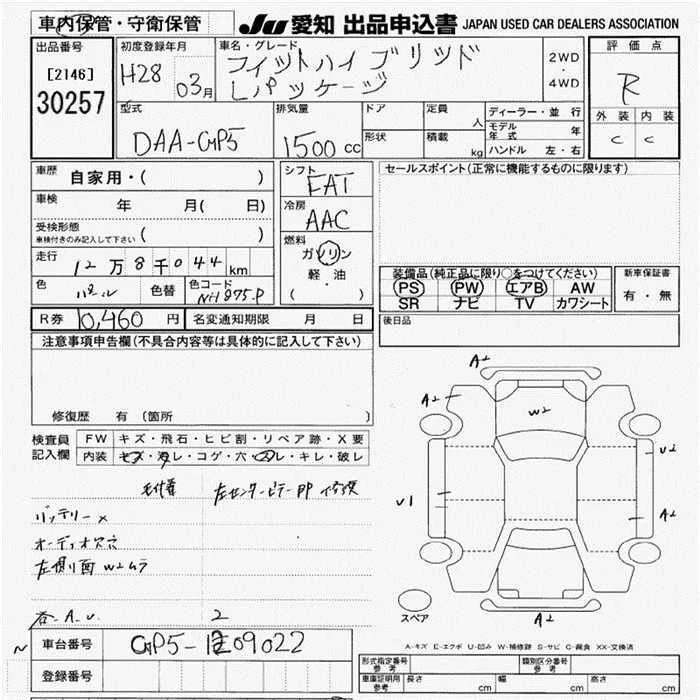 車内保管・守衛保管
JU 愛知 出品申込書 JAPAN USED CAR DEALERS ASSOCIATION
出品番号
[2146]
30257
初度登録年月
H28 03月
車名・グレード
フィットハイブリッド
Lパッケージ
2WD
・
4WD
評価点
R
外装 内装
C C
型式
DAA-GP5
排気量
1500 cc
ドア
形状
定員 人
積載 kg
ディーラー・並行
モデル年式 年
ハンドル 左・右
車歴
自家用・( )
車検
年 月( 日)
受検形態
車検付きのみ記入して下さい ( )
走行
12万8千044km
色
パール
色替
色コード
NH875P
シフト
FAT
冷房
AAC
燃料
ガソリン
軽・油
( )
セールスポイント(正常に機能するものに限ります)
装備品(純正品に限り○をつけてください)
PS PW エアB AW
SR ナビ TV カワシート
新車保証書
有・無
R券 10,460 円 名変通知期限 月 日
後日品
注意事項申告欄(不具合内容等は具体的に記入して下さい)
修復歴 有(箇所 )
検査員
記入欄
FW キズ・飛石・ヒビ割・リペア跡・X要
内装 キズ・汚レ・コゲ・穴・スレ・キレ・破レ
左センターピラーPP
バッテリーX
オーディオ欠穴
左側面W2ムラ
各A.U. 2
車台番号
GP5-1209022
登録番号
A2
A2
W2
U2
U1
A2
A2
スペア
A-キズ E-エクボ U-凹み W-補修跡 S-サビ C-腐食 XX-交換済
形式指定番号
参考
類別区分番号
参考
車庫証明用
参考
長さ cm 幅 cm 高さ cm